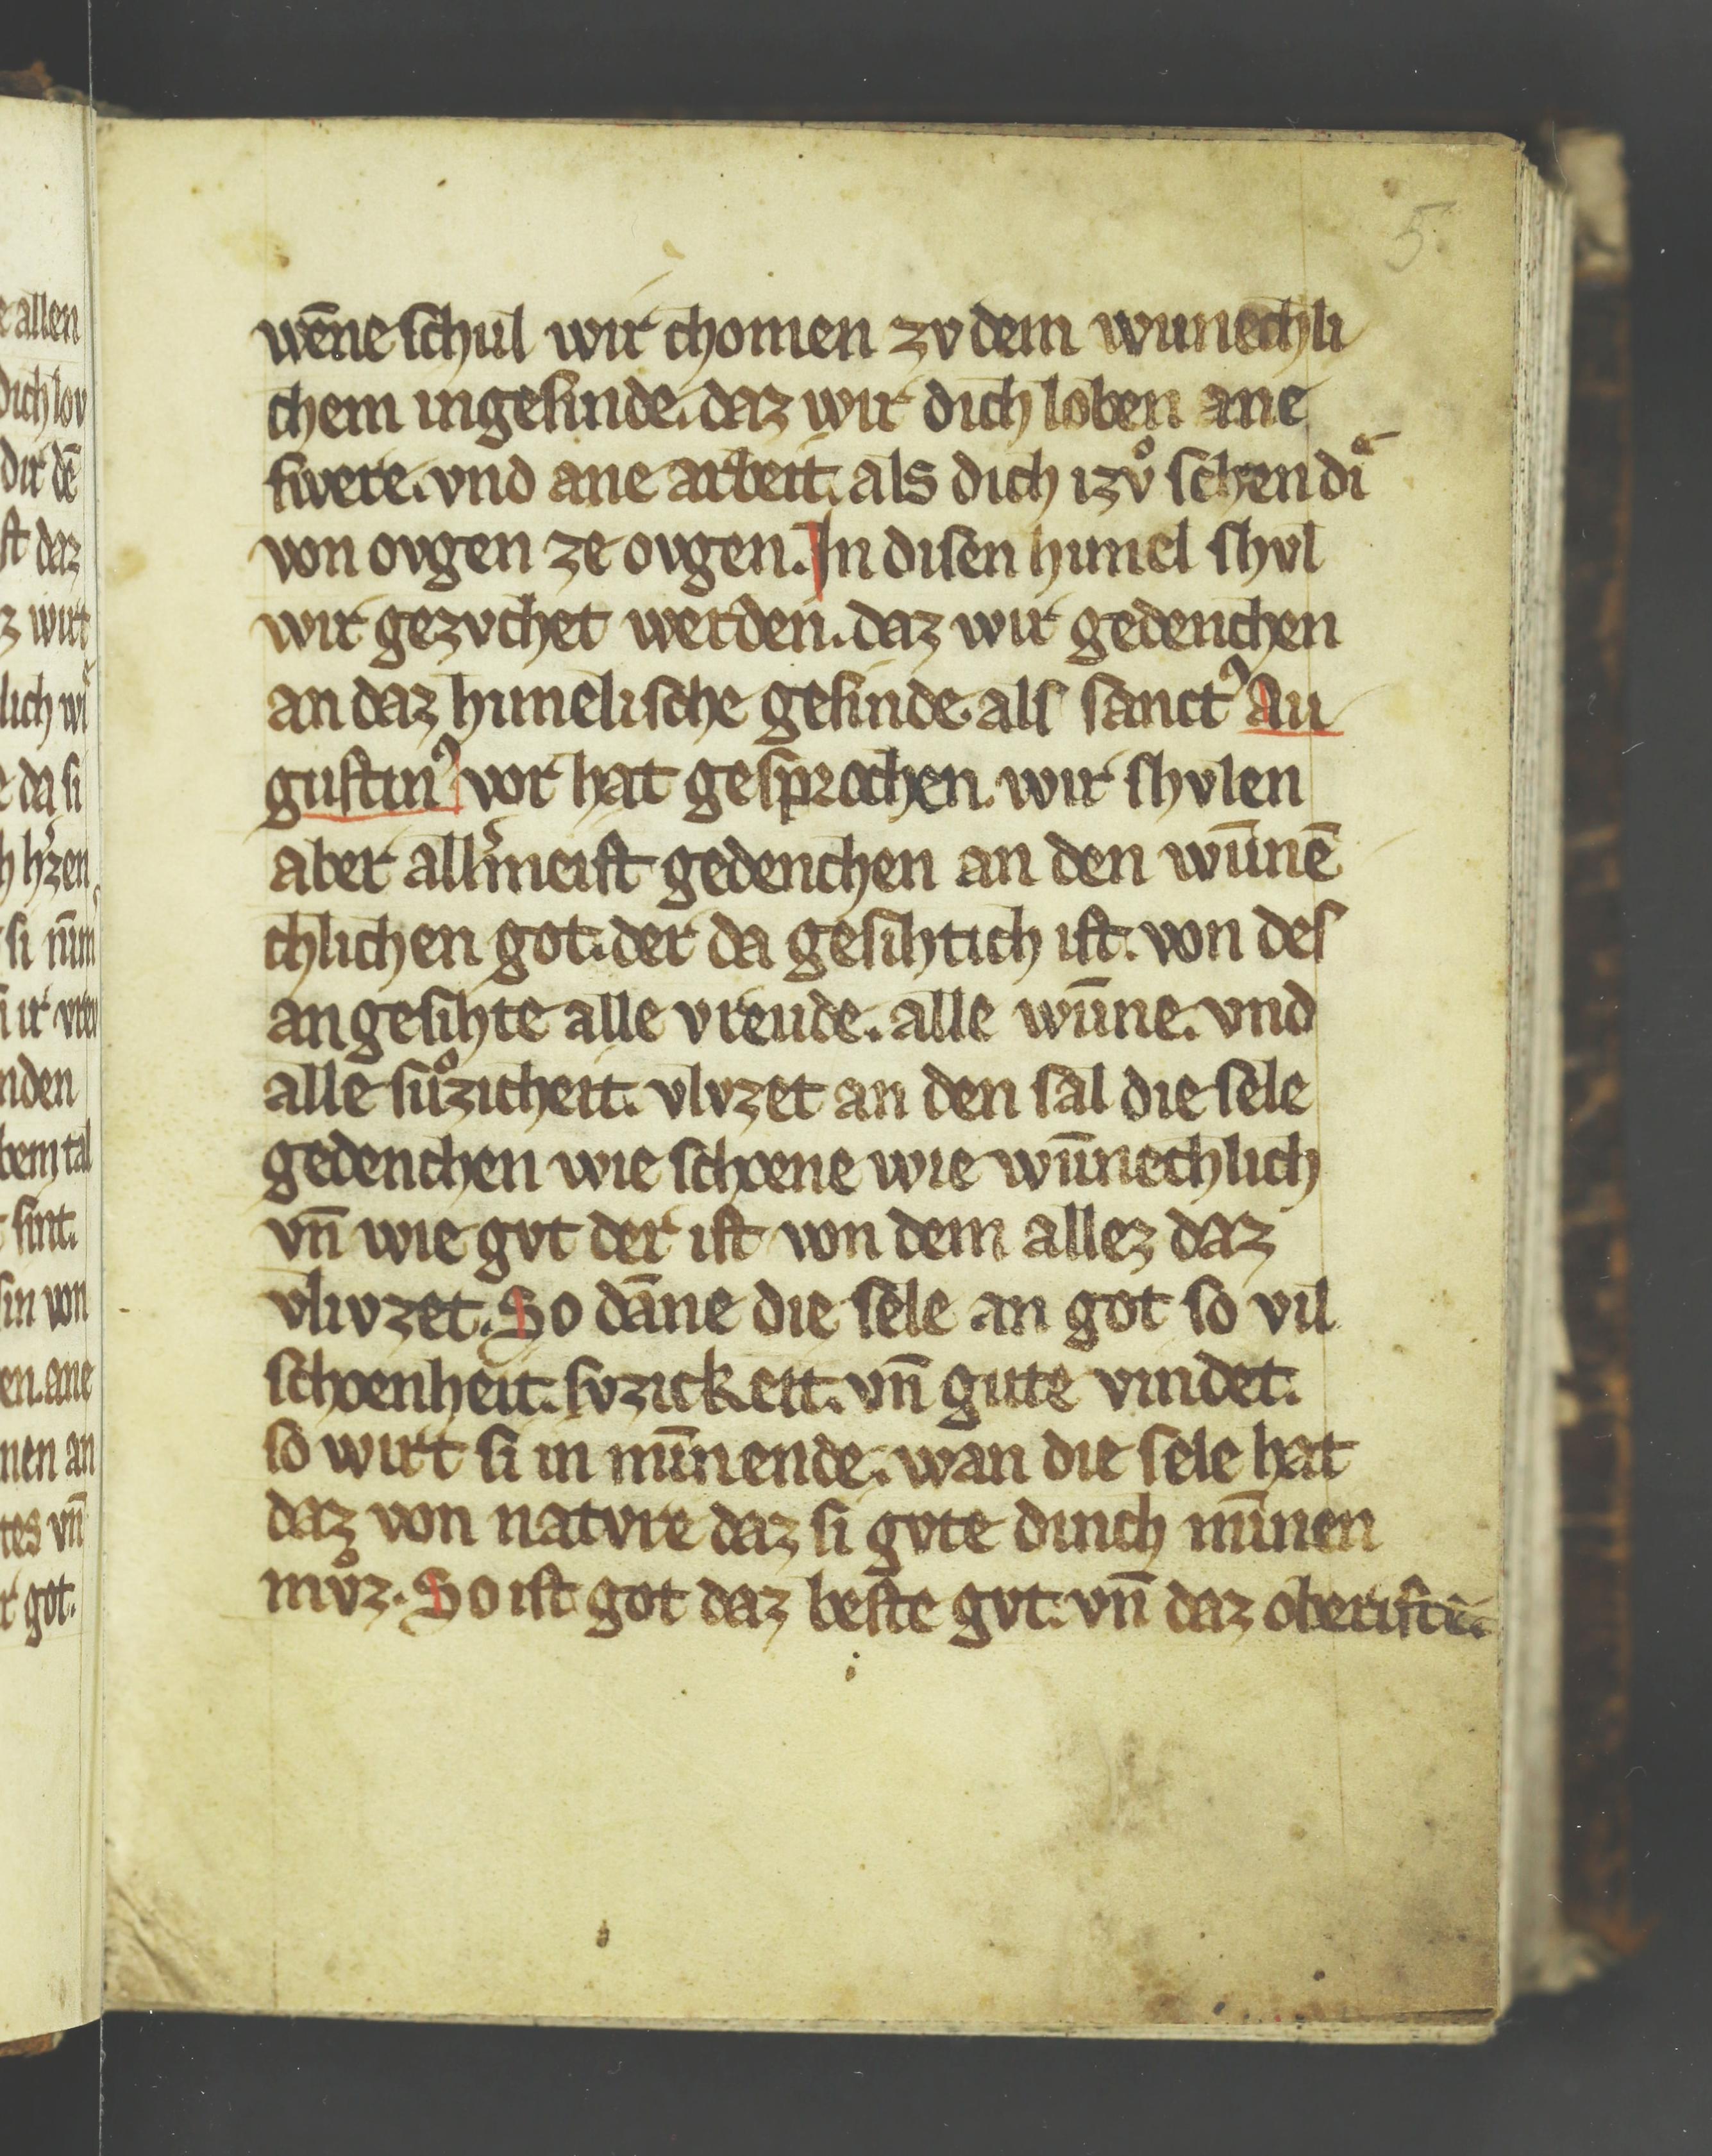 5.
wēne schul wir chomen zv dem wunechli
chem ingesinde. daz wir dich loben ane
swere. vnd ane arbeit. als dich izvͦ schen diͤ
von ovgen ze ovgen. In disen himel shvl
wir gezvchet werden. daz wir gedenchen
an daz himelische gesinde als sanctꝰ Au
gustinꝰ vor hat gesprochen. wir shvlen
aber all'meist gedenchen an den wūnē
chlichen got. der da gesihtich ist. von des
angesihte alle vreude. alle wūne. vnd
alle suͦzicheit. vlvzet an den sal die sele
gedenchen wie schoene wie wūnechlich
vn̄ wie gvt der ist von dem allez daz
vlivzet. So dāne die sele an got so vil
schoenheit. svzickeit. vn̄ gute vindet.
so wirt si in mīnende. wan die sele hat
daz von natvre daz si gvte durch mīnen
mvͦz. So ist got daz beste gvt. vn̄ daz oberiste.
e allen
dich lov
dir dē
st daz
z wirt
lich wi
e da si
h h'zen
si nūm
nden
bem tal
sint.
sin von
en. ane
nen an
tes vn̄
r got.